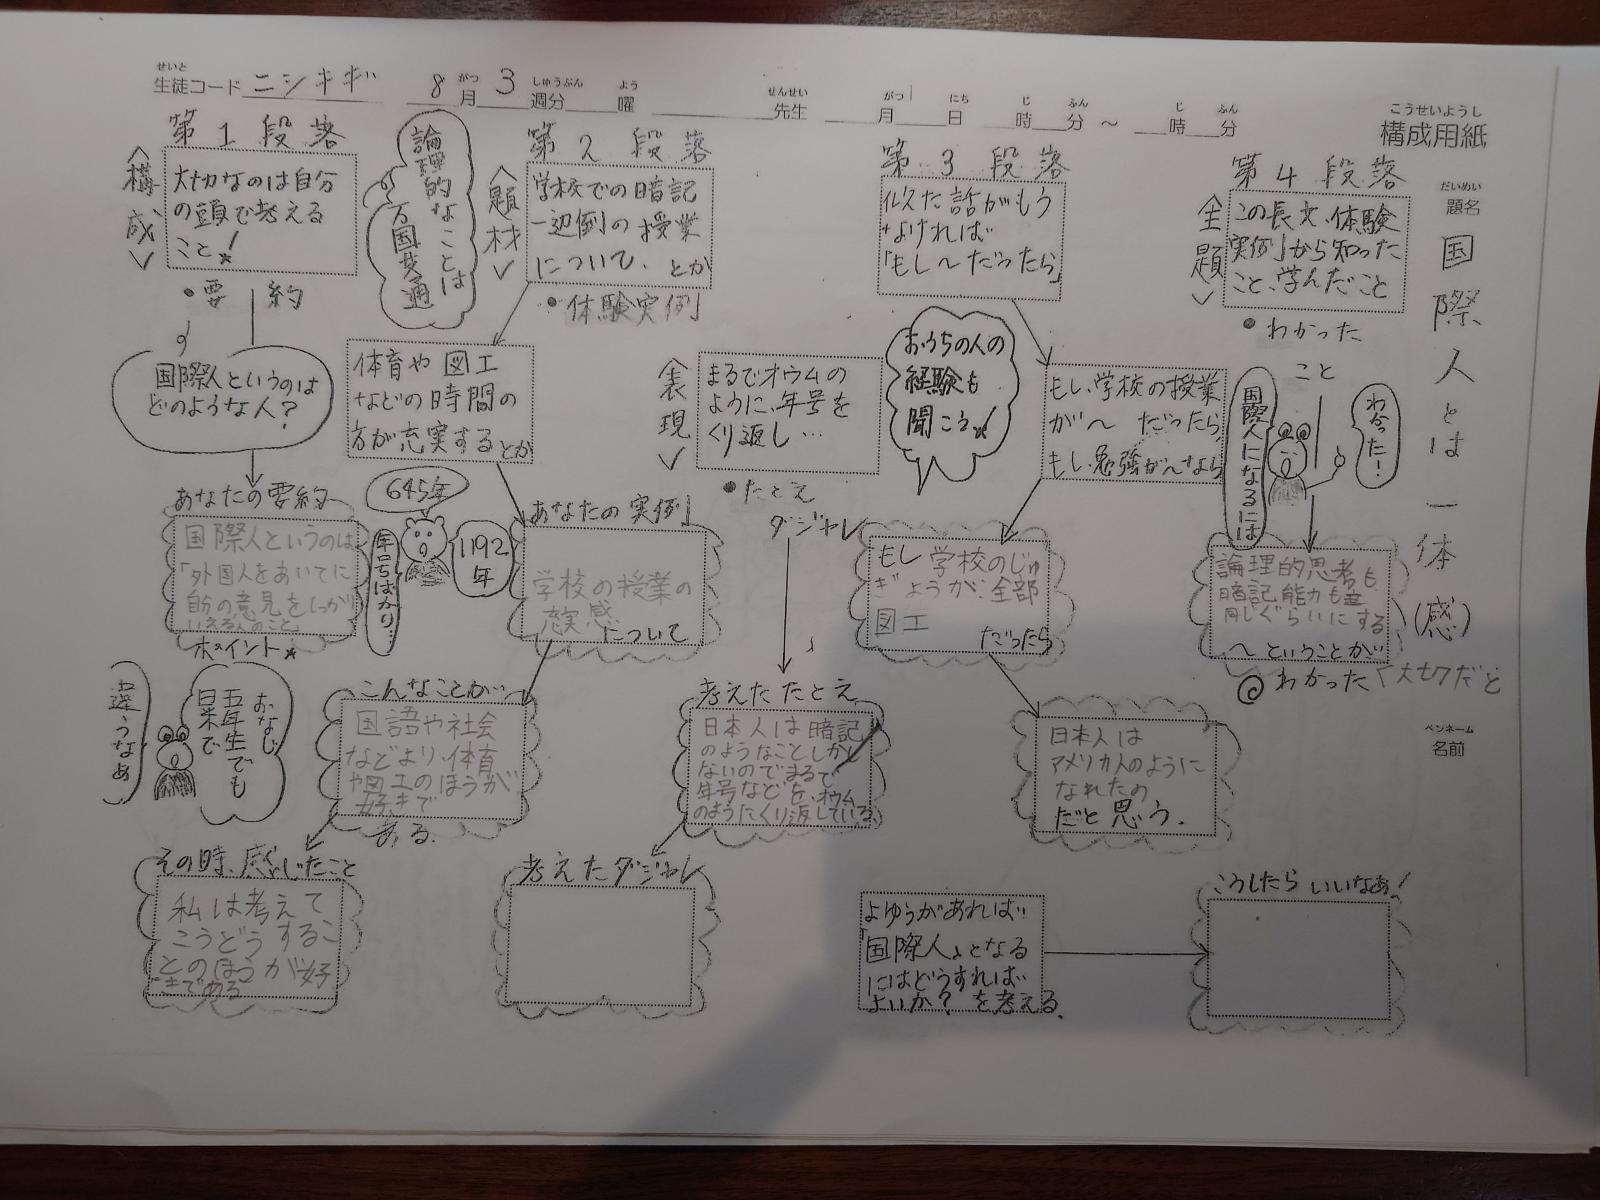 せいと
生徒コード ニシキギ 8 がつ 月 3 しゅうぶん 週分 よう 曜 せんせい 先生 がつ 月 にち 日 じ 時 ふん 分 ～ じ 時 ふん 分
こうせいようし
構成用紙
だいめい
題名
国際人とは一体(感)
ペンネーム
名前
第1段落
〈構成〉
大切なのは自分
の頭で考える
こと!
・要約
国際人というのは
どのような人?
あなたの要約
国際人というのは
「外国人をあいてに
自分の意見をしっかり
いえる人のこと」
ポイント
おなじ
五年生でも
日米で
違うなあ
論理的なことは
万国共通
第2段落
〈題材〉
学校での暗記
一辺倒の授業
について、とか
・体験実例
体育や図工
などの時間の
方が充実するとか
645年
1192年
年号ばかり…
あなたの実例
学校の授業の
充実感
について
こんなことが…
国語や社会
などより、体育
や図工のほうが
好きで
ある.
その時、感じたこと
私は考えて
こうどうするこ
とのほうが好
きである
第3段落
た話がもう
なければ
「もし〜だったら」
〈表現〉
まるでオウムの
ように、年号を
くり返し…
・たとえ
ダジャレ
おうちの人の
経験も
聞こう!
もし、学校の授業
が〜だったら
もし、勉強が〜なら
もし学校のじゅ
ぎょうが、全部
図工
だったら
考えたたとえ
日本人は暗記
のようなことしかし
ないのでまるで
年号などを、オウム
のようにくり返している。
日本人は
アメリカ人のように
なれたの
だと思う.
考えたダジャレ
第4段落
〈主題〉
この長文、体験
実例から知った
こと、学んだこと
・わかった
こと
国際人になるには
わかった!
論理的思考も
暗記能力も
同じぐらいにする
〜ということが…
わかった「大切だと
よゆうがあれば…
「国際人」となる
にはどうすれば
よいか?を考える.
こうしたらいいなあ!